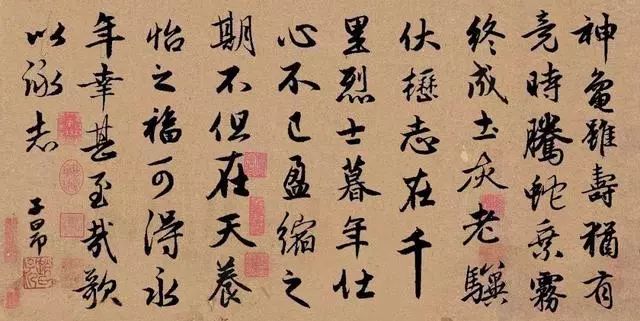 神龜雖壽猶有
竟時騰蛇乘霧
終成土灰老驥
伏櫪志在千
里烈士暮年仕
心不已盈縮之
期不但在天養
怡之福可得永
年幸甚至哉歌
以詠志
子昂